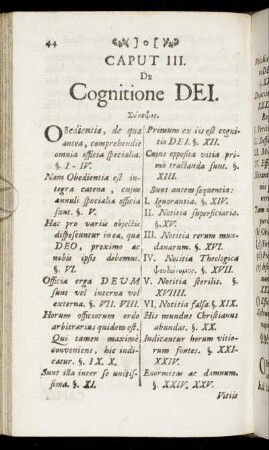 44 o
CAPUT III.
De
Cognitione DEI.
Σύνοψις.
OBedientia, de qua
antea, comprehendit
omnia officia specialia.
§. I - IV.
Nam Obedientia est in
tegra catena, cujus
annuli specialia officia
sunt. §. V.
Hæc pro variis objectis
dispescuntur in ea, quæ
DEO, proximo ac
nobis ipsis debemus.
§. VI.
Officia erga DEUM
sunt vel interna vel
externa. §. VII. VIII.
Horum officiorum ordo
arbitrarius quidem est.
Qui tamen maximè
conveniens, hic indi-
catur. §. IX. X.
Sunt illa inter se unitis-
sima. §. XI.
Primum ex iis est cogni-
tio DEI. §. XII.
Cujus opposita vitia pri-
mò tractanda sunt. §.
XIII.
Sunt autem sequentia:
I. Ignorantia. §. XIV.
II. Notitia superficiaria.
§. XV.
III. Notitia rerum mun-
danarum. §. XVI.
IV. Notitia Theologica
ψευδώνυμος. §. XVII.
V. Notitia sterilis. §.
XVIIII.
VI. Notitia falsa. §. XIX.
His mundus Christianus
abundat. §. XX.
Indicantur horum vitio-
rum fontes. §. XXI-
XXIV.
Enormitas ac damnum.
§. XXIV. XXV.
Vitiis